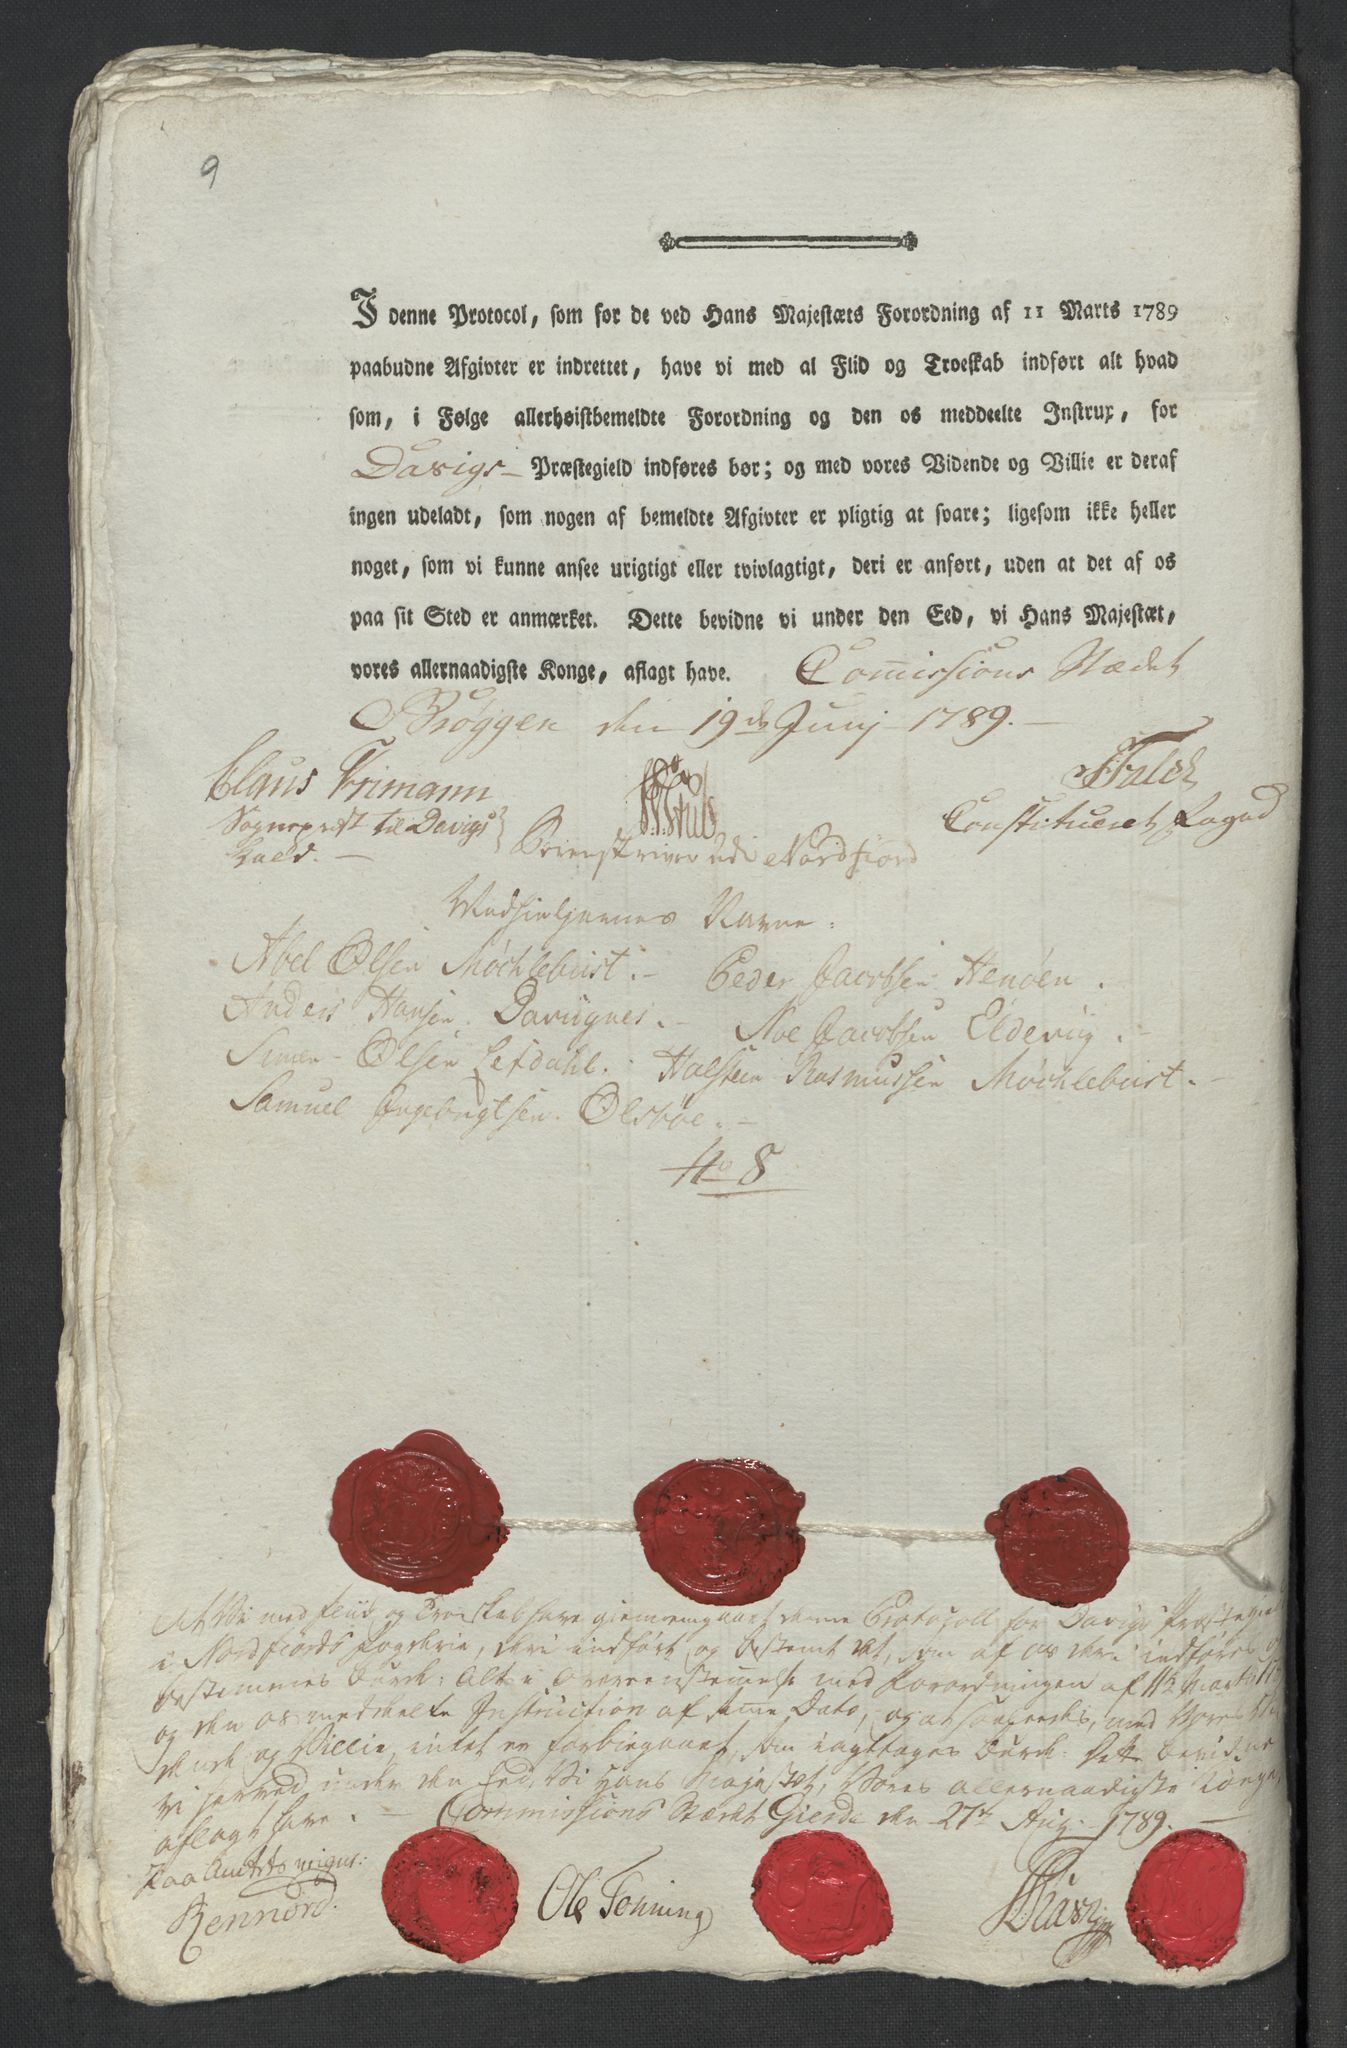 9
I denne Protocol, som for de ved Hans Majestæts Forordning af 11 Marts 1789
paabudne Afgivter er indrettet, have vi med al Flid og Troeskab indført alt hvad
som, i Følge allerhøistbemeldte Forordning og den os meddeelte Instrux, for
Davigs Præstegield indføres bør; og med vores Vidende og Villie er deraf
ingen udeladt, som nogen af bemeldte Afgivter er pligtig at svare; ligesom ikke heller
noget, som vi kunne ansee urigtigt eller tvivlagtigt, deri er anført, uden at det af os
paa sit Sted er anmærket. Dette bevidne vi under den Eed, vi Hans Majestæt,
vores allernaadigste Konge, aflagt have. Comissions Stædet
Bryggen den 19de Junj 1789.
Claus Frimann
Sogneprest til Davigs
Kald.
Sorenskriver udi Nordfiord
Constitueret Foged
Navne:
Abel Olsen Møchlebust. Peder Jacobsen Henøen.
Anders Hansen Davignes. Noe Jacobsen Eldevig.
Simen Olsen Lefdahl. Halstein Rasmussen Møchlebust.
Samuel Ingebrigtsen Olsbøe.
No 8
At Vi med Fliid og Troeskab have giennemgaaet denne Protocoll for Davigs Præstegield
i Nordfiords Fogderie, deri indført og bestemt det, som af os deri indføres og
bestemmes burde: Alt i Overeensstemmelse med Forordningen af 11te Marti
og den os meddeelte Instruction af samme Dato, og at saaledes, med Vores
og Villie, intet er forbiegaaet, som iagttages burde: Det bevidne
vi herved under den Eed, Vi Hans Majestet, Vores allernaadigste Konge,
aflagt have. Commissions Stædet Gierde den 27de Aug: 1789.
Paa Amtets veigne:
Rennord.
Ole Tenning